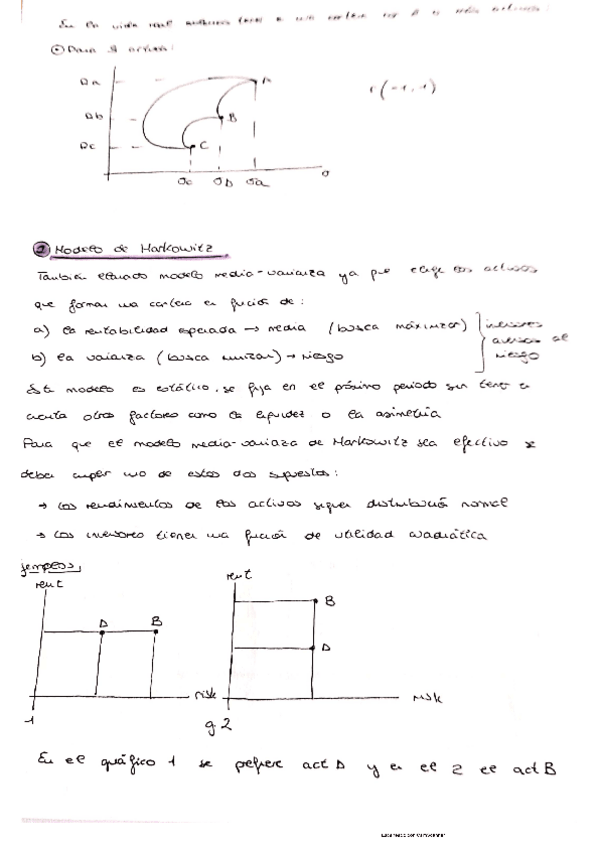 En la vida real
Para 3 activos:
Ra A r(-1,1)
Rb B
Rc C
σc σb σa σ
2 Modelo de Markowitz
También llamado modelo media-varianza ya que elige los activos
que forman una cartera en función de:
a) la rentabilidad esperada → media (busca maximizar) inversores
b) la varianza (busca minimizar) → riesgo aversos al riesgo
Este modelo es estático, se fija en el próximo periodo sin tener en
cuenta otros factores como la liquidez o la asimetría
Para que el modelo media-varianza de Markowitz sea efectivo se
deben cumplir uno de estos dos supuestos:
→ Los rendimientos de los activos siguen distribución normal
→ Los inversores tienen una función de utilidad cuadrática
Ejemplos,
rent rent
B
A B A
risk risk
1 g 2
En el gráfico 1 se prefiere act A y en el 2 el act B